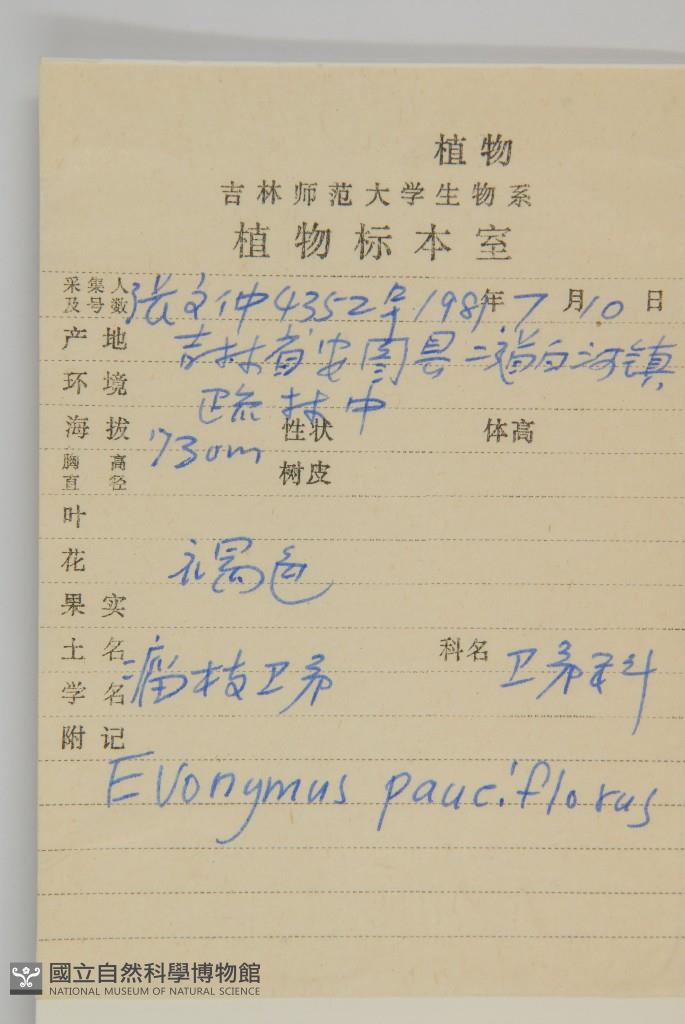 植物
吉林师范大学生物系
植物标本室
采集人及号数 张文仲 4352号 1981年 7 月 10 日
产地 吉林省安图县二道白河镇
环境 疏林中
海拔 730m 性状 体高
胸高直径 树皮
叶
花 褐色
果实
土名 瘤枝卫矛 科名 卫矛科
学名
附记
Evonymus pauciflorus
國立自然科學博物館
NATIONAL MUSEUM OF NATURAL SCIENCE